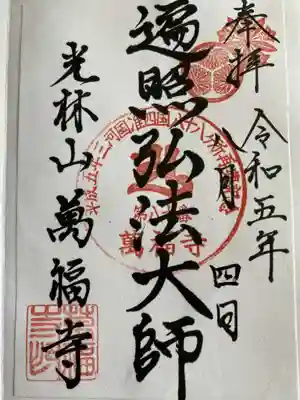 奉拝
令和五年
八月
四日
遍照弘法大師
萬福寺
光林山
萬福寺